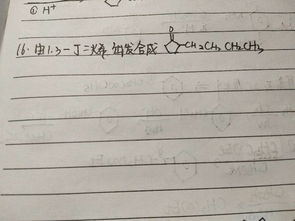 ② H⁺
16. 由1.3-丁二烯出发合成
O
-CH₂CH₂CH₂CH₃